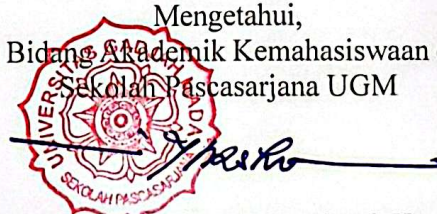 Mengetahui,
Bidang Akademik Kemahasiswaan
Sekolah Pascasarjana UGM
UNIVERSITAS GADJAH MADA
SEKOLAH PASCASARJANA